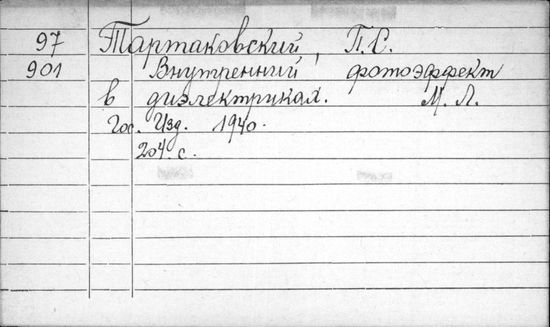 97 Тартаковский, П. С.
901 Внутренний фотоэффект
в диэлектриках. М. Л.
Гос. Изд. 1940.
204 с.